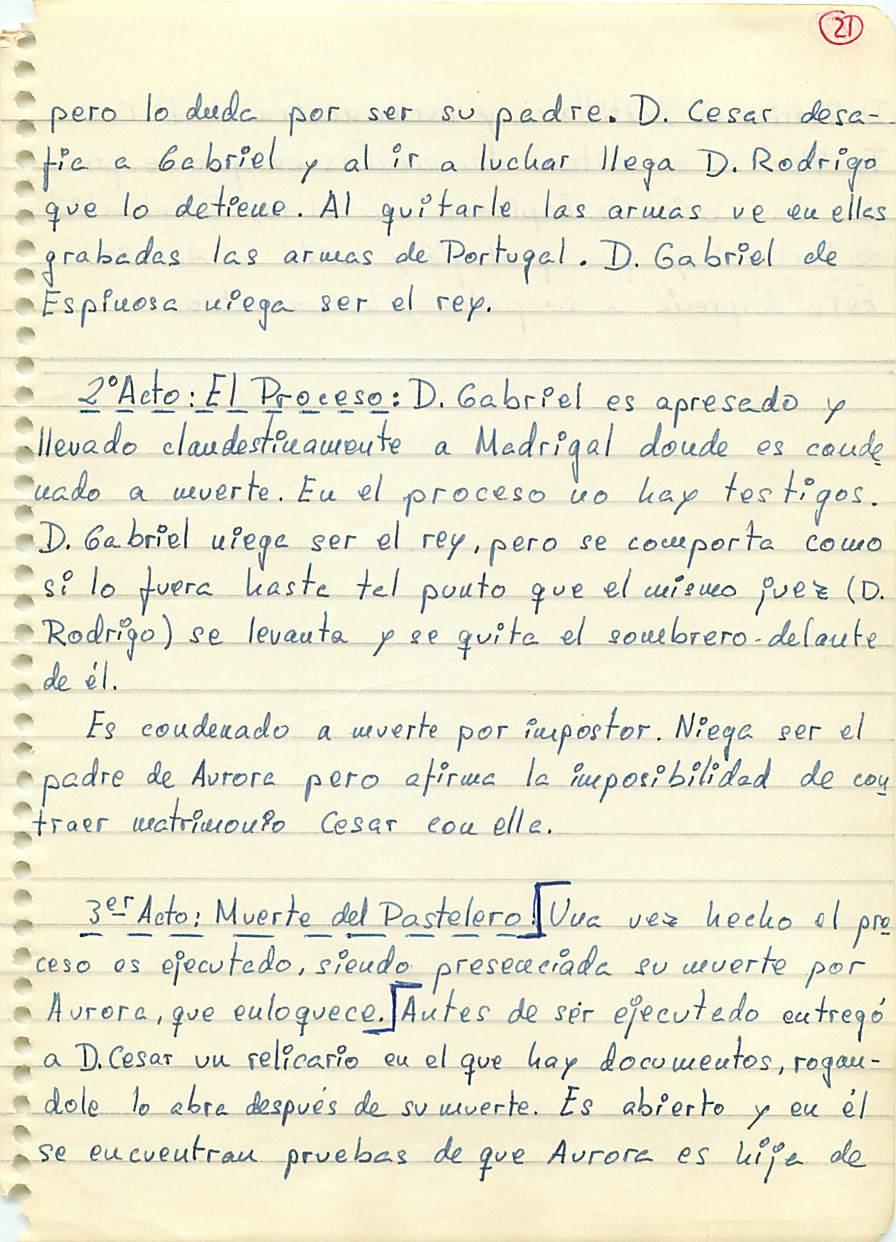 21
pero lo duda por ser su padre. D. Cesar desa-
fia a Gabriel y al ir a luchar llega D. Rodrigo
que lo detiene. Al quitarle las armas ve en ellas
grabadas las armas de Portugal. D. Gabriel de
Espinosa niega ser el rey.
2º Acto: El Proceso: D. Gabriel es apresado y
llevado clandestinamente a Madrigal donde es conde
nado a muerte. En el proceso no hay testigos.
D. Gabriel niega ser el rey, pero se comporta como
si lo fuera hasta tal punto que el mismo juez (D.
Rodrigo) se levanta y se quita el sombrero-delante
de él.
Es condenado a muerte por impostor. Niega ser el
padre de Aurora pero afirma la imposibilidad de con
traer matrimonio Cesar con ella.
3er Acto: Muerte del Pastelero: [Una vez hecho el pro
ceso es ejecutado, siendo presenciada su muerte por
Aurora, que enloquece.] [Antes de ser ejecutado entregó
a D. Cesar un relicario en el que hay documentos, rogan-
dole lo abra después de su muerte. Es abierto y en él
se encuentran pruebas de que Aurora es hija de